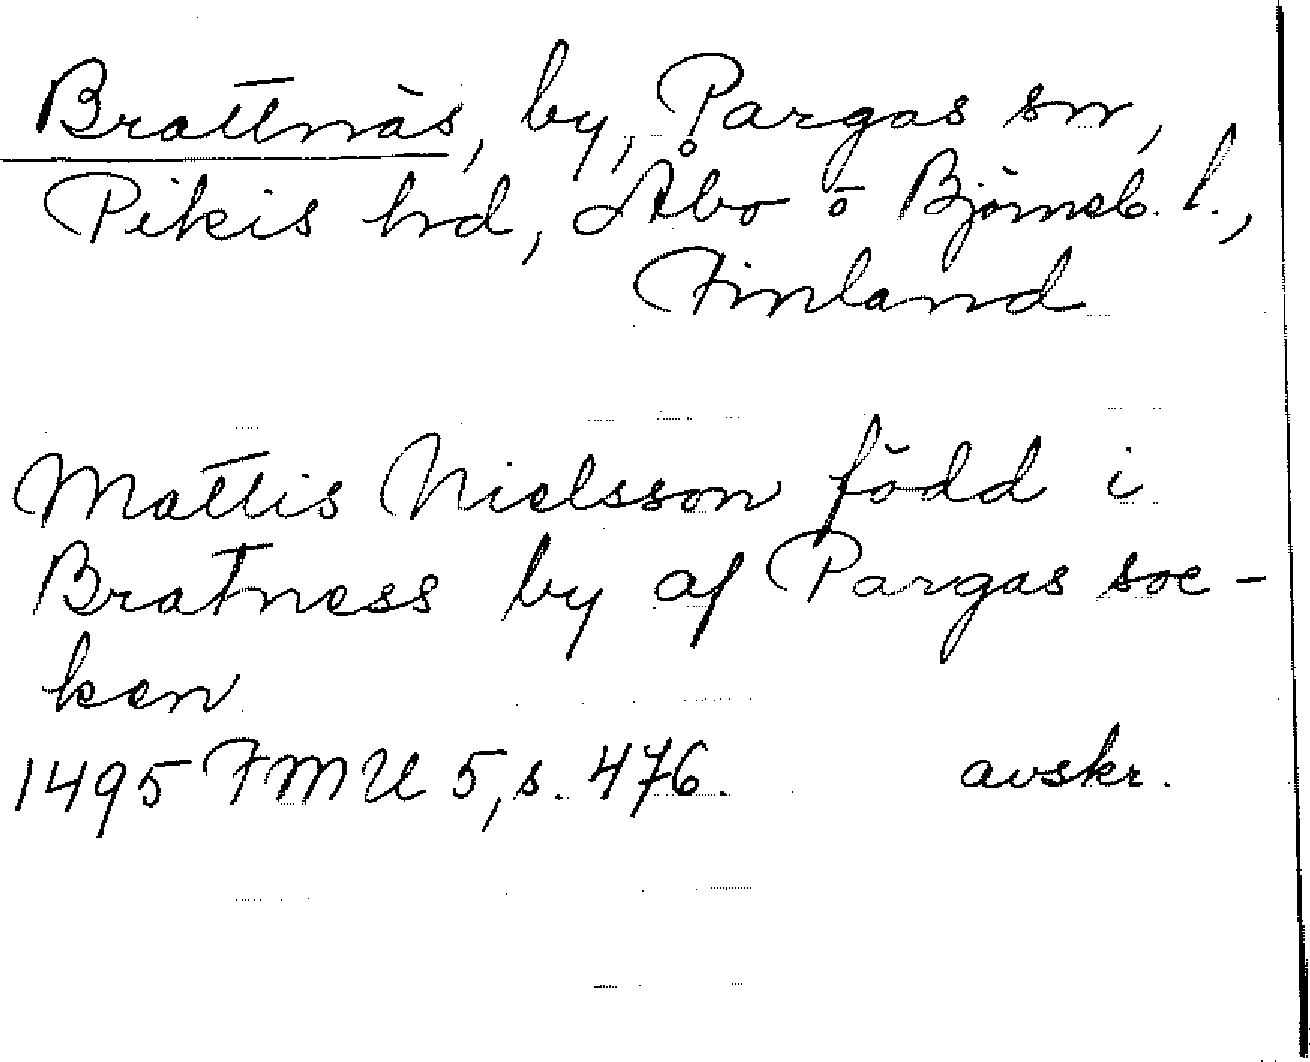 Brattnäs, by, Pargas sn,
Pikis hd, Åbo o Björneb. l.,
Finland
Mattis Nielsson född i
Bratness by af Pargas soc-
ken
1495 FMU 5, s. 476. avskr.